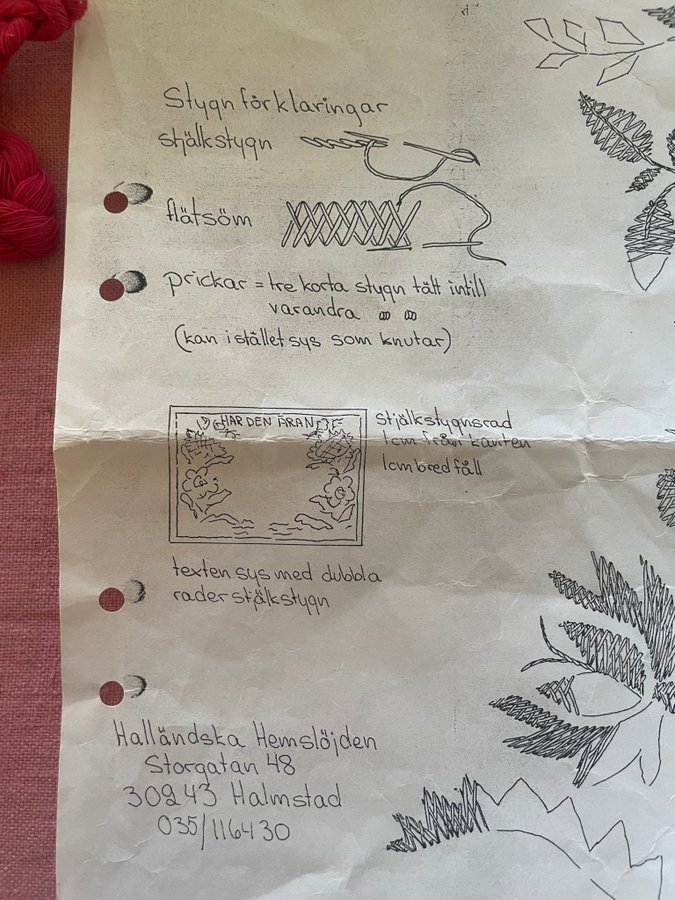 Stygn förklaringar
stjälkstygn
flätsöm
prickar = tre korta stygn tätt intill
varandra
(kan istället sys som knutar)
HAR DEN ÄRAN
stjälkstygnsrad
1cm från kanten
1cm bred fåll
texten sys med dubbla
rader stjälkstygn
Halländska Hemslöjden
Storgatan 48
30243 Halmstad
035/116430